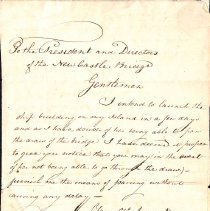 To the President and Directors
of the New Castle Bridge
Gentlemen
I intend to launch the
ship building on my Island in a few days
and as I have doubts of her being able to pass
the draw of the bridge I have deemed it proper
to give you notice that you may in the event
of her not being able to go through the draw,
furnish me the means of passing without
causing any delay